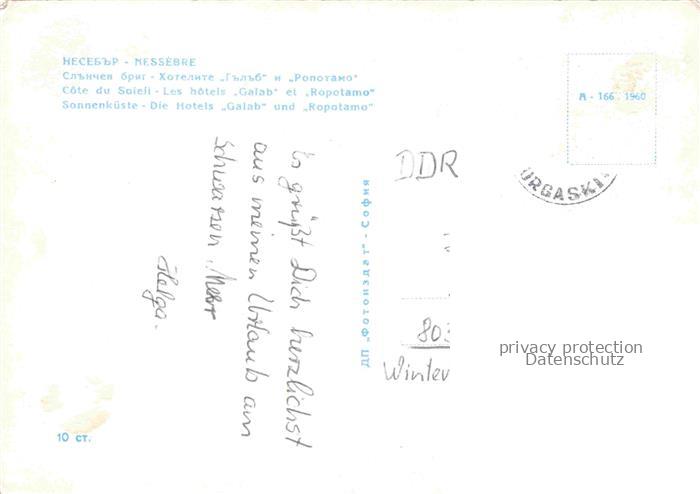 НЕСЕБЪР - NESSÈBRE
Слънчен бриг - Хотелите „Гълъб“ и „Ропотамо“
Côte du Soleil - Les hôtels „Galab“ et „Ropotamo“
Sonnenküste - Die Hotels „Galab“ und „Ropotamo“
А - 166 1960
URGASKI
DDR
803
Winter
ДП „Фотоиздат“ - София
Es grüßt Dich herzlichst
aus meinen Urlaub am
Schwarzen Meer
Helga.
10 ст.
privacy protection
Datenschutz